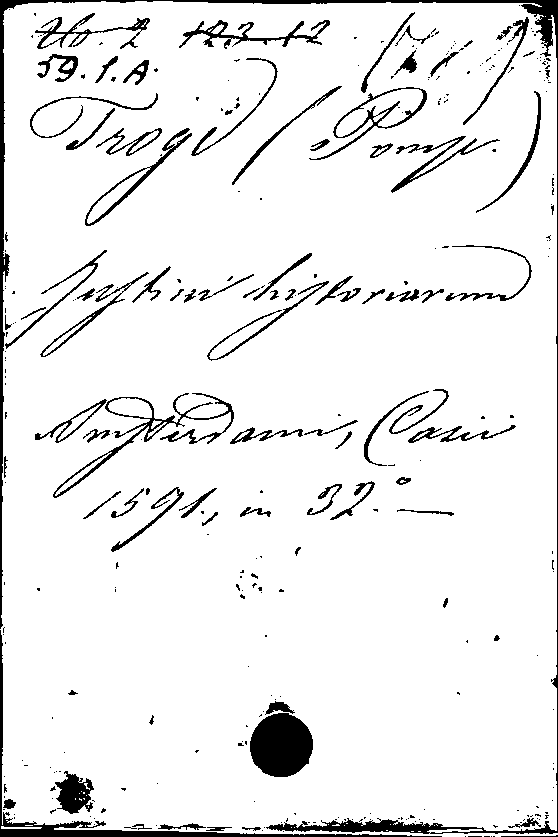 Ub. 2 123.12
59.1.A.
Trogi (Pomp.)
Justini historiarum
Amsterdami, Casii
1591., in 32.° —